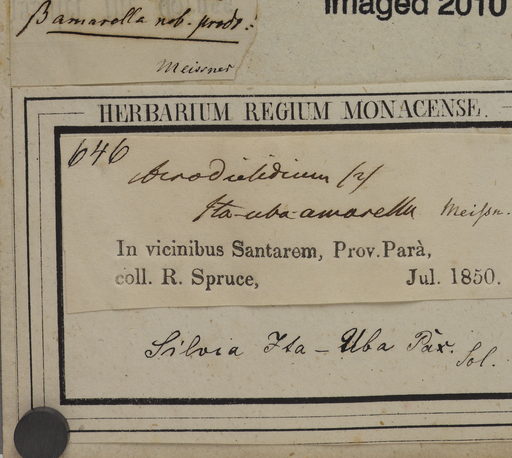 β amarella nob. prodr.:
Meissner
Imaged 2010
HERBARIUM REGIUM MONACENSE.
646
Acrodiclidium (2)
Ita-uba-amarella Meissn.
In vicinibus Santarem, Prov. Parà,
coll. R. Spruce, Jul. 1850.
Silvia Ita-Uba Pàx. Sol.